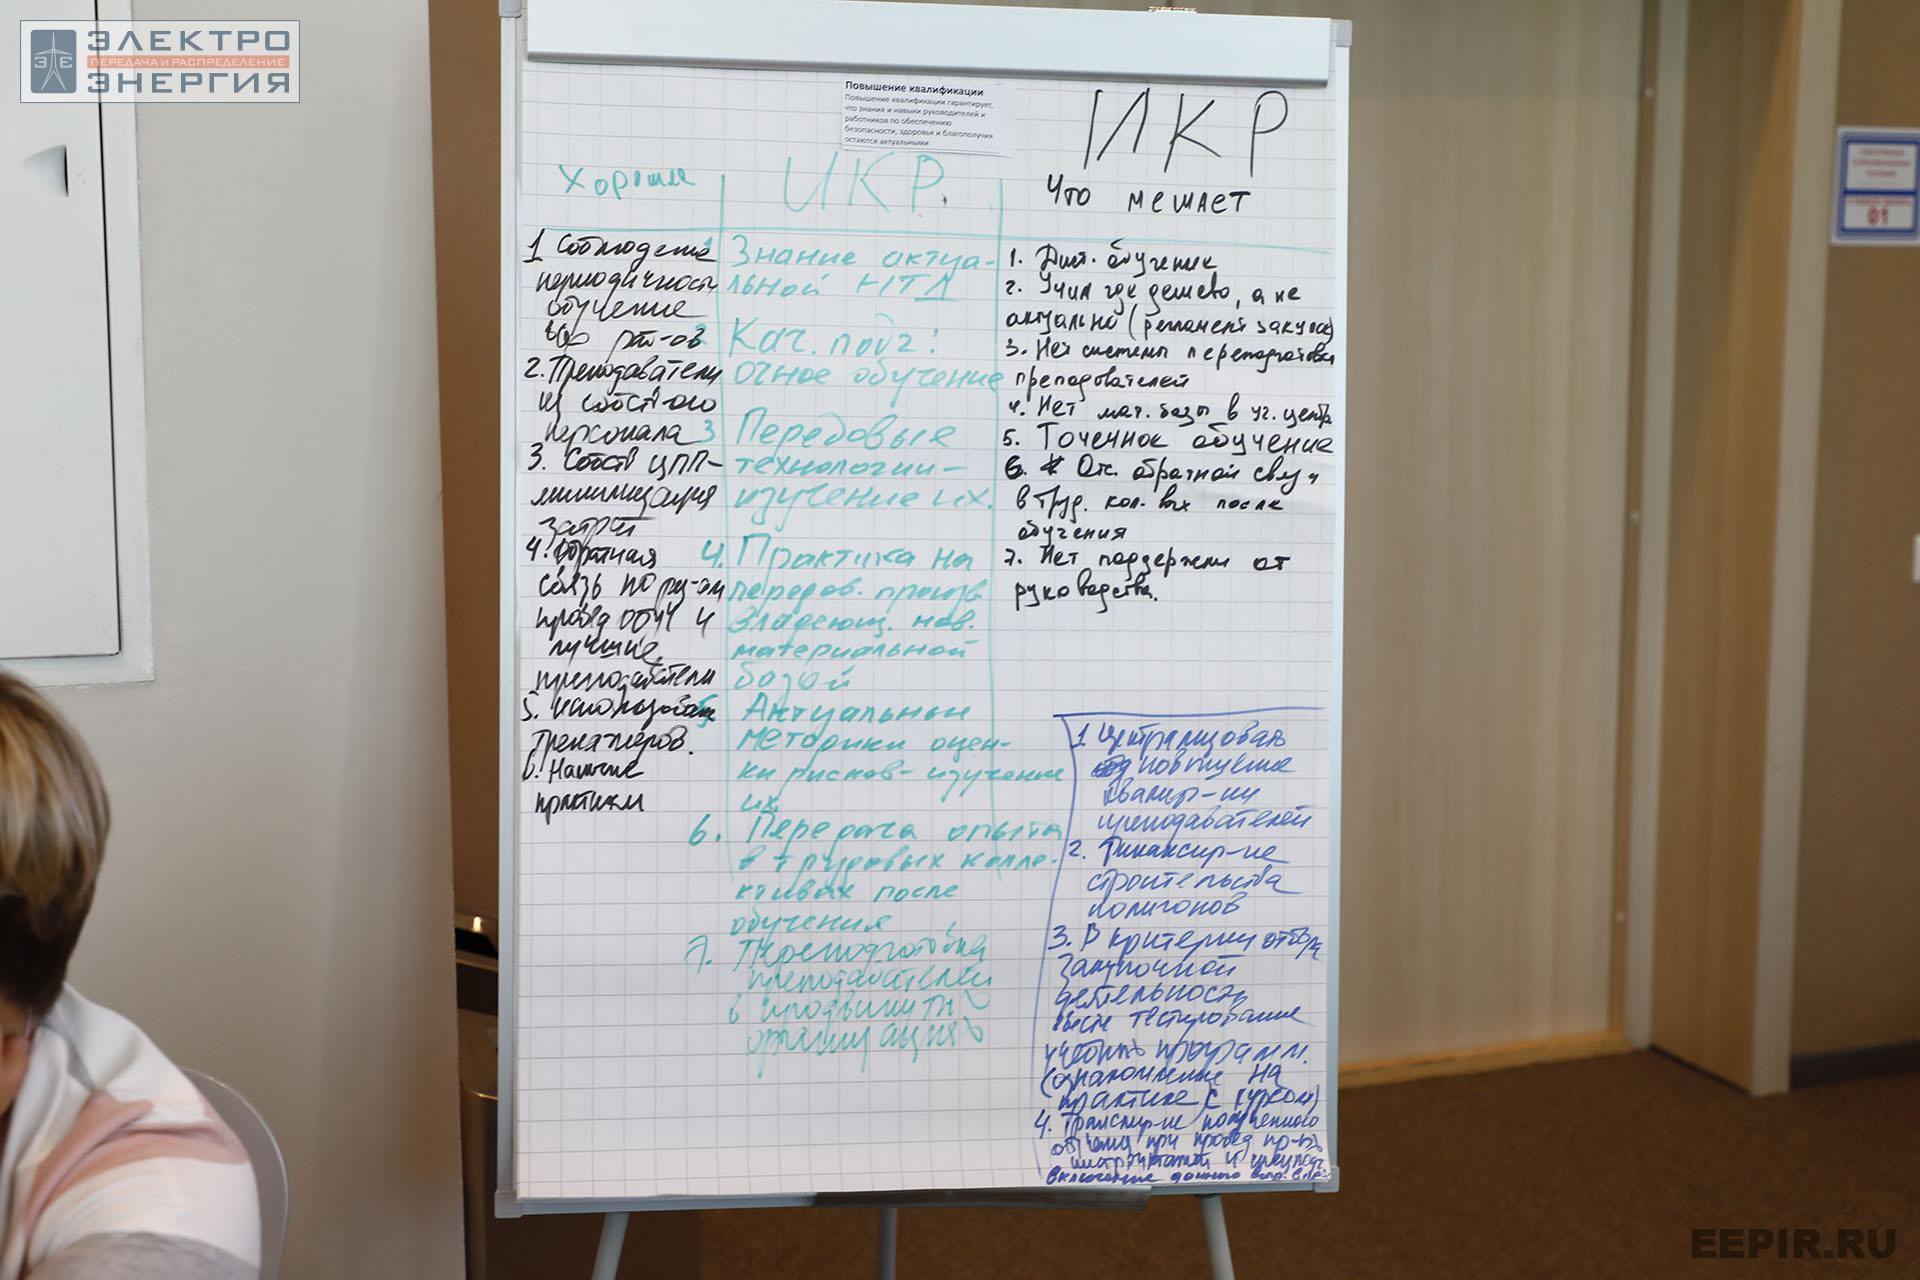 ЭЛЕКТРО
ПЕРЕДАЧА и РАСПРЕДЕЛЕНИЕ
ЭНЕРГИЯ
Повышение квалификации
Повышение квалификации гарантирует,
что знания и навыки руководителей и
работников по обеспечению
безопасности, здоровья и благополучия
остаются актуальными
ИКР
Хорошее
1 Соблюдение
периодичность
обучение
раб-ов
2. Преподаватели
из собств-ого
персонала
3. Собств ЦПП-
минимизация
затрат
4. Обратная
связь
провед обуч и
лучшие
преподаватели
5. использован
тренажеров.
6. Наличие
практики
ИКР.
1 Знание актуа-
льной НТД
2 Кач. подг:
очное обучение
3 Передовые
технологии-
изучение их.
4. Практика на
передов. произв
владеющ. нов.
материальной
базой
5 Актуальные
методики оцен-
ки рисков- изучение
их.
6. Передача опыта
в трудовых колле-
ктивах после
обучения
7. Переподготовка
преподавателей
в продвинутых
организациях
Что мешает
1. Дист. обучение
2. Учим где дешево, а не
актуально (регламент закупок)
3. Нет системы переподготовки
преподователей
4. Нет мат. базы в уч. центр
5. Точечное обучение
6. Отс. обратной связи
в труд. кол-вах после
обучения
7. Нет поддержки от
руководства.
1 Централизовать
повышение
квалиф-ии
преподавателей
2. Финансир-ие
строительства
полигонов
3. В критерии отбора
закупочной
деятельность
тестирование
программ.
(ознакомление на
практике с курсом)
4. полученного
обучения при провед
инструктажей и
включение данного вопр.
01
EEPIR.RU